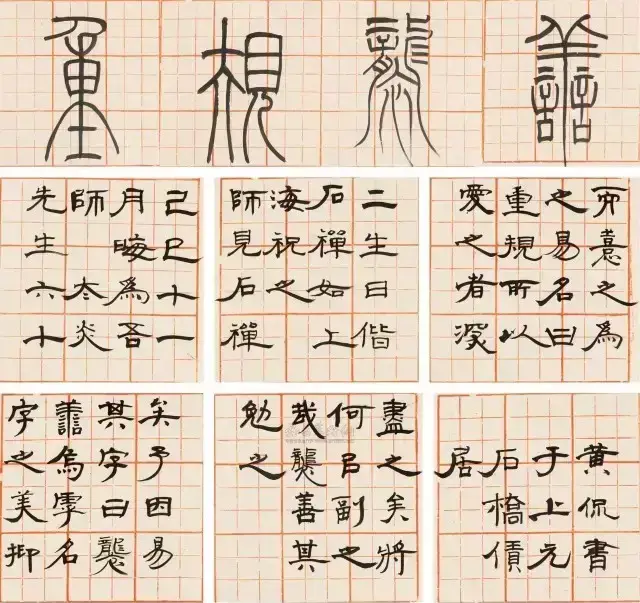 重規襲譱
己巳十一
月晦為吾
師太炎
先生六十
二生日偕
石禪如上
海祝之
師見石禪
而憙之為
之易名曰
重規所以
愛之者深
矣予因易
其字曰襲
譱烏虖名
字之美抑
盡之矣將
何㠯副之
哉襲善其
勉之
黃侃書
于上元
石橋
居